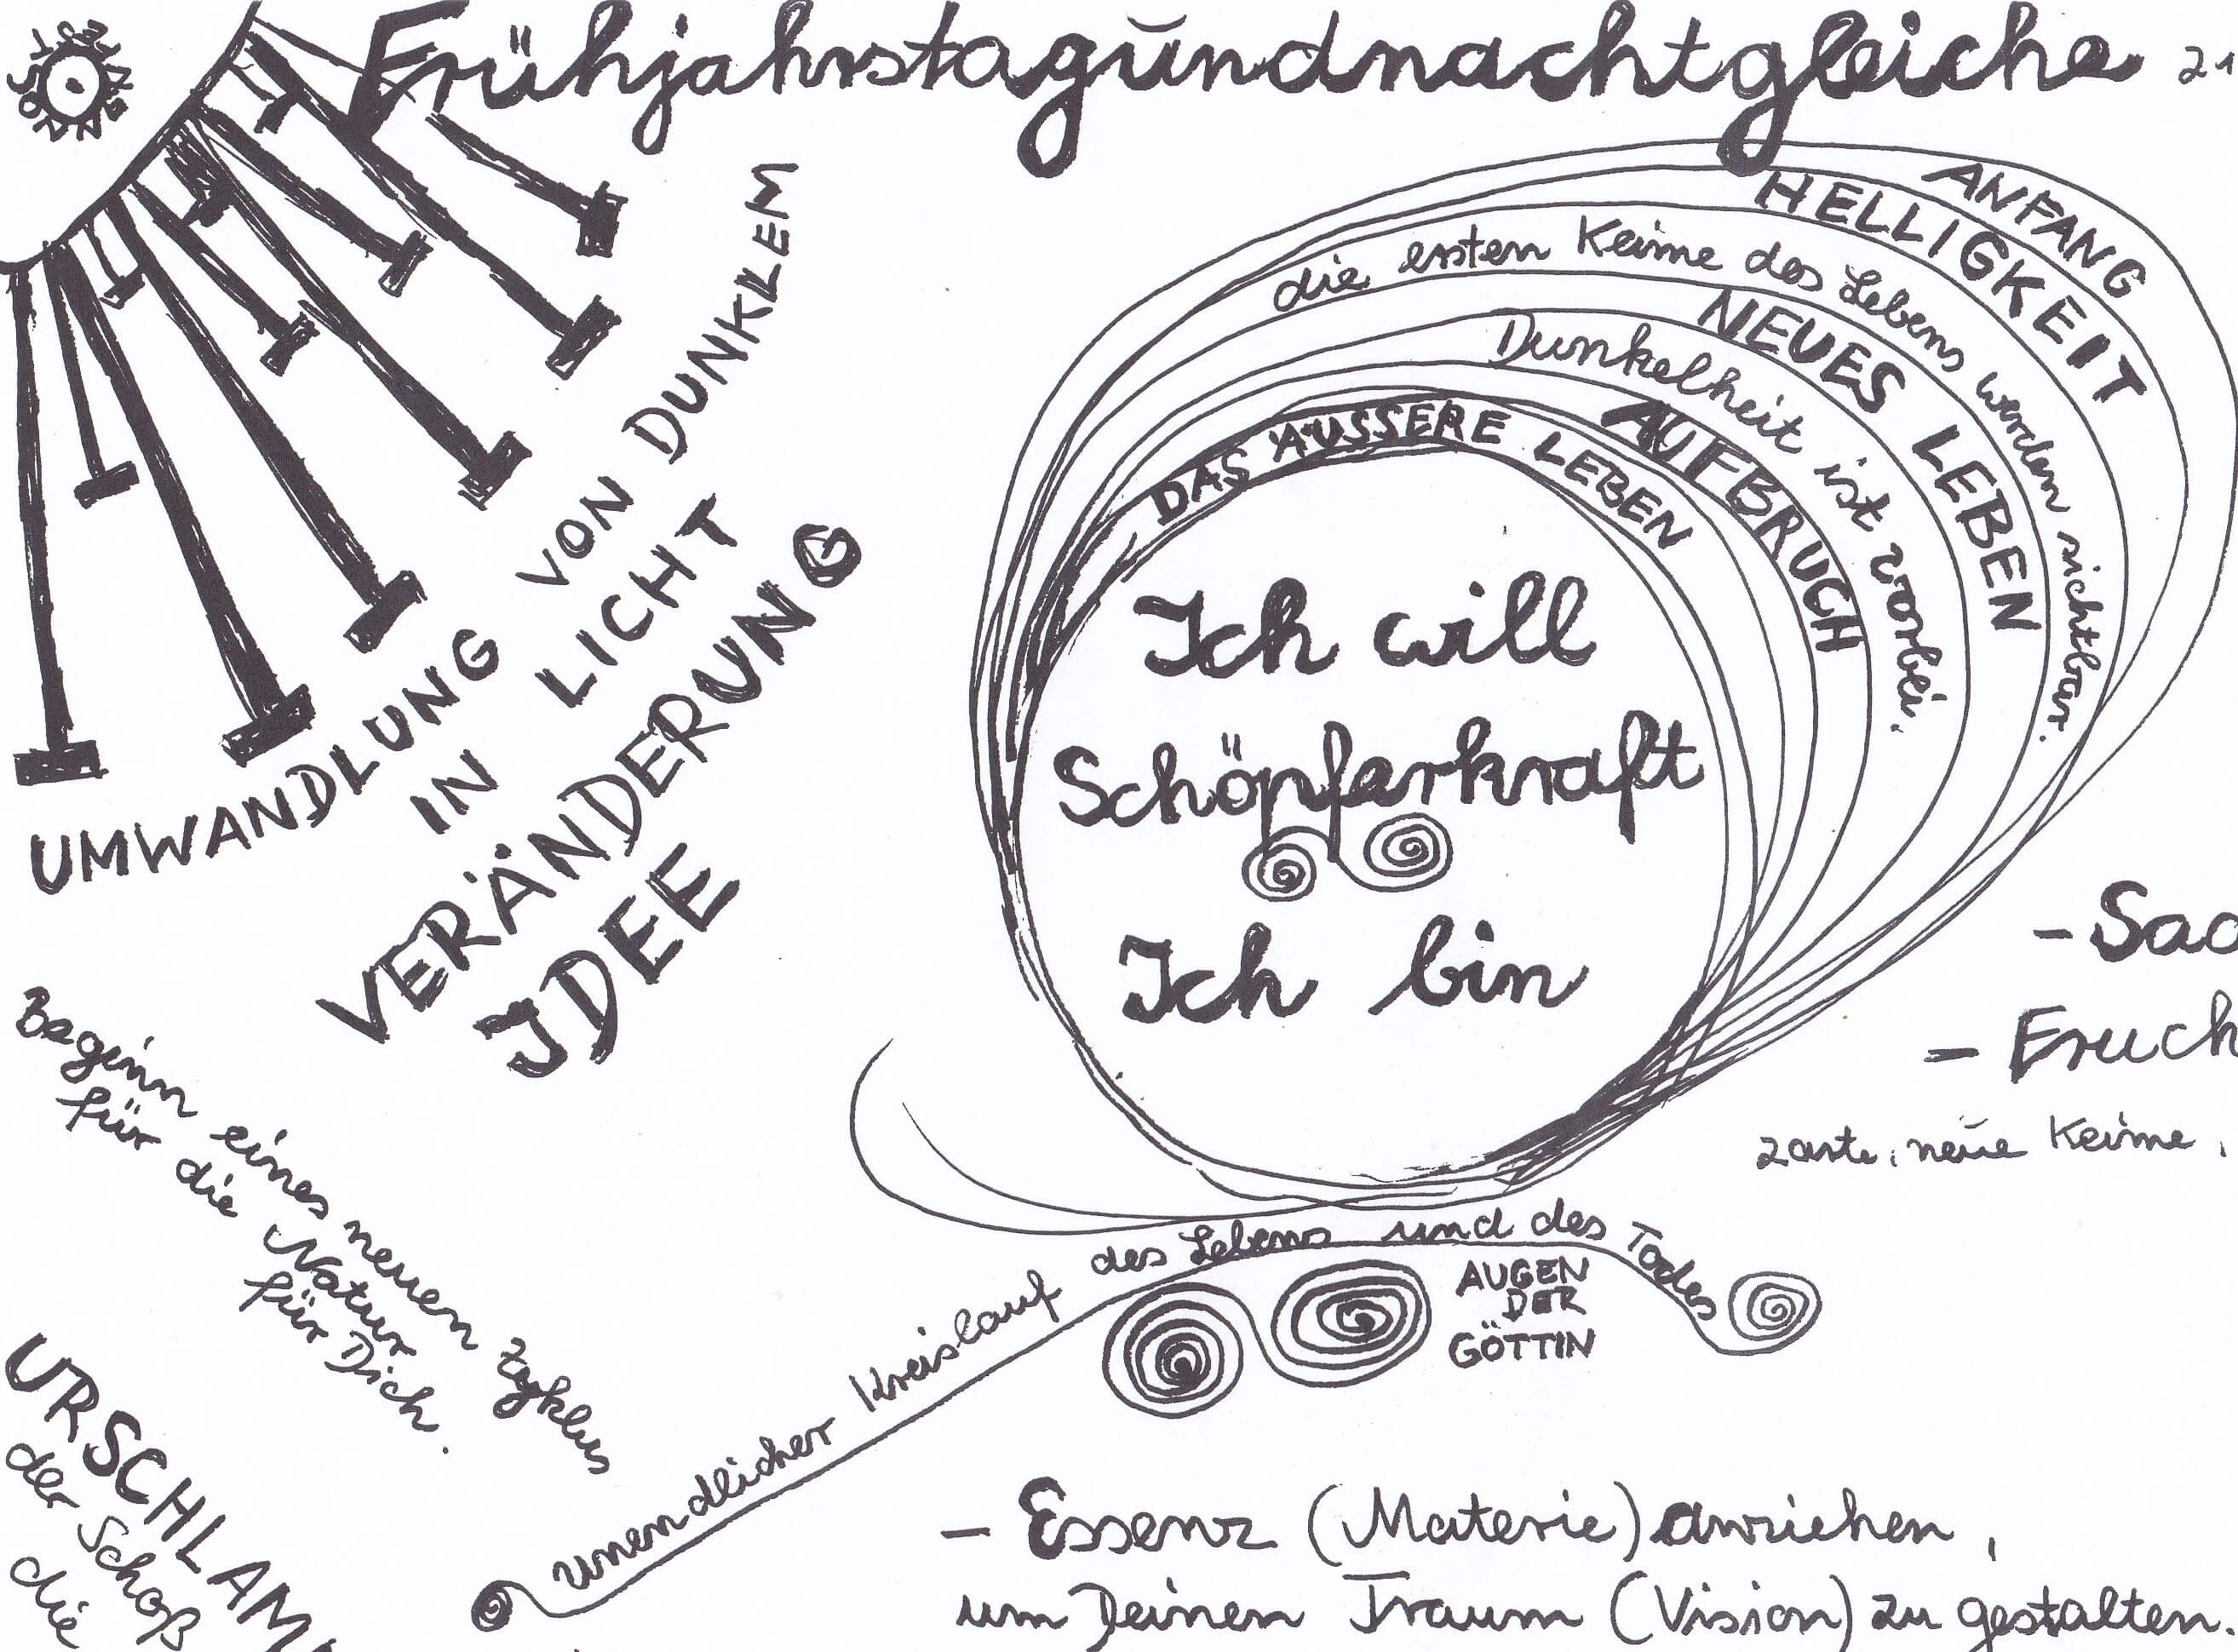 Frühjahrstagundnachtgleiche 21
SONNE
UMWANDLUNG VON DUNKLEM
IN LICHT
VERÄNDERUNG
IDEE
ANFANG
HELLIGKEIT
die ersten Keime des Lebens werden sichtbar.
NEUES LEBEN
Dunkelheit ist vorbei.
AUFBRUCH
DAS ÄUSSERE LEBEN
Ich will
Schöpferkraft
Ich bin
- Sa
- Fruch
zarte, neue Keime,
Beginn eines neuen Zyklus
für die Natur
für Dich.
URSCHLAM
der Schoß
die
unendlicher Kreislauf des Lebens und des Todes
AUGEN
DER
GÖTTIN
- Essenz (Materie) anziehen,
um Deinen Traum (Vision) zu gestalten.